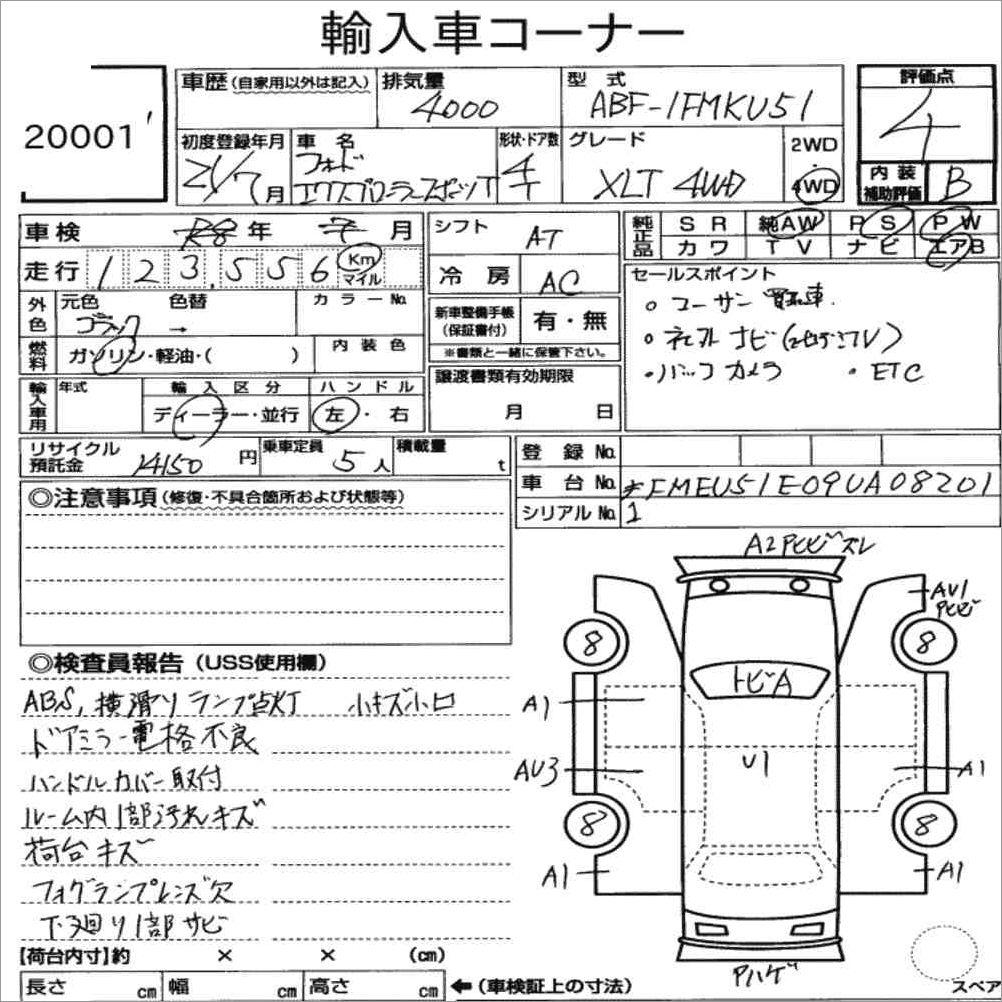 輸入車コーナー
20001
車歴 (自家用以外は記入)
排気量
4000
型式
ABF-1FMKU51
評価点
4
初度登録年月
21/7月
車名
フォード
エクスプローラースポーツT
形状・ドア数
4
グレード
XLT 4WD
2WD
・
4WD
内装
補助評価
B
車検 R8年 7月
シフト AT
純正品
SR 純AW PS PW
カワ TV ナビ エアB
走行 123,556 Km
マイル
冷房 AC
セールスポイント
○ ユーザー買取車
外色 元色 色替 カラーNo.
ブラック →
新車整備手帳
(保証書付)
有・無
※書類と一緒に保管下さい。
燃料 ガソリン・軽油・( )
内装色
・バックカメラ ・ETC
輸入車用 年式 輸入区分 ハンドル
ディーラー・並行 左・右
譲渡書類有効期限
月 日
リサイクル
預託金 14150円
乗車定員 5人
積載量 t
登録No.
車台No. *FMEU51E09UA08201
シリアルNo. 1
◎注意事項 (修復・不具合箇所および状態等)
A2 Pヒビズレ
AV1
Pヒビ
8 8
◎検査員報告 (USS使用欄)
ABS, 横滑りランプ点灯 小キズ小凹
ドアミラー電格不良
ハンドルカバー取付
ルーム内1部汚れキズ
荷台キズ
フォグランプレンズ欠
下廻り1部サビ
トビA
A1
AU3 U1 A1
8 8
A1 A1
Pハゲ
【荷台内寸】約 × × (cm)
長さ cm 幅 cm 高さ cm ←(車検証上の寸法)
スペア